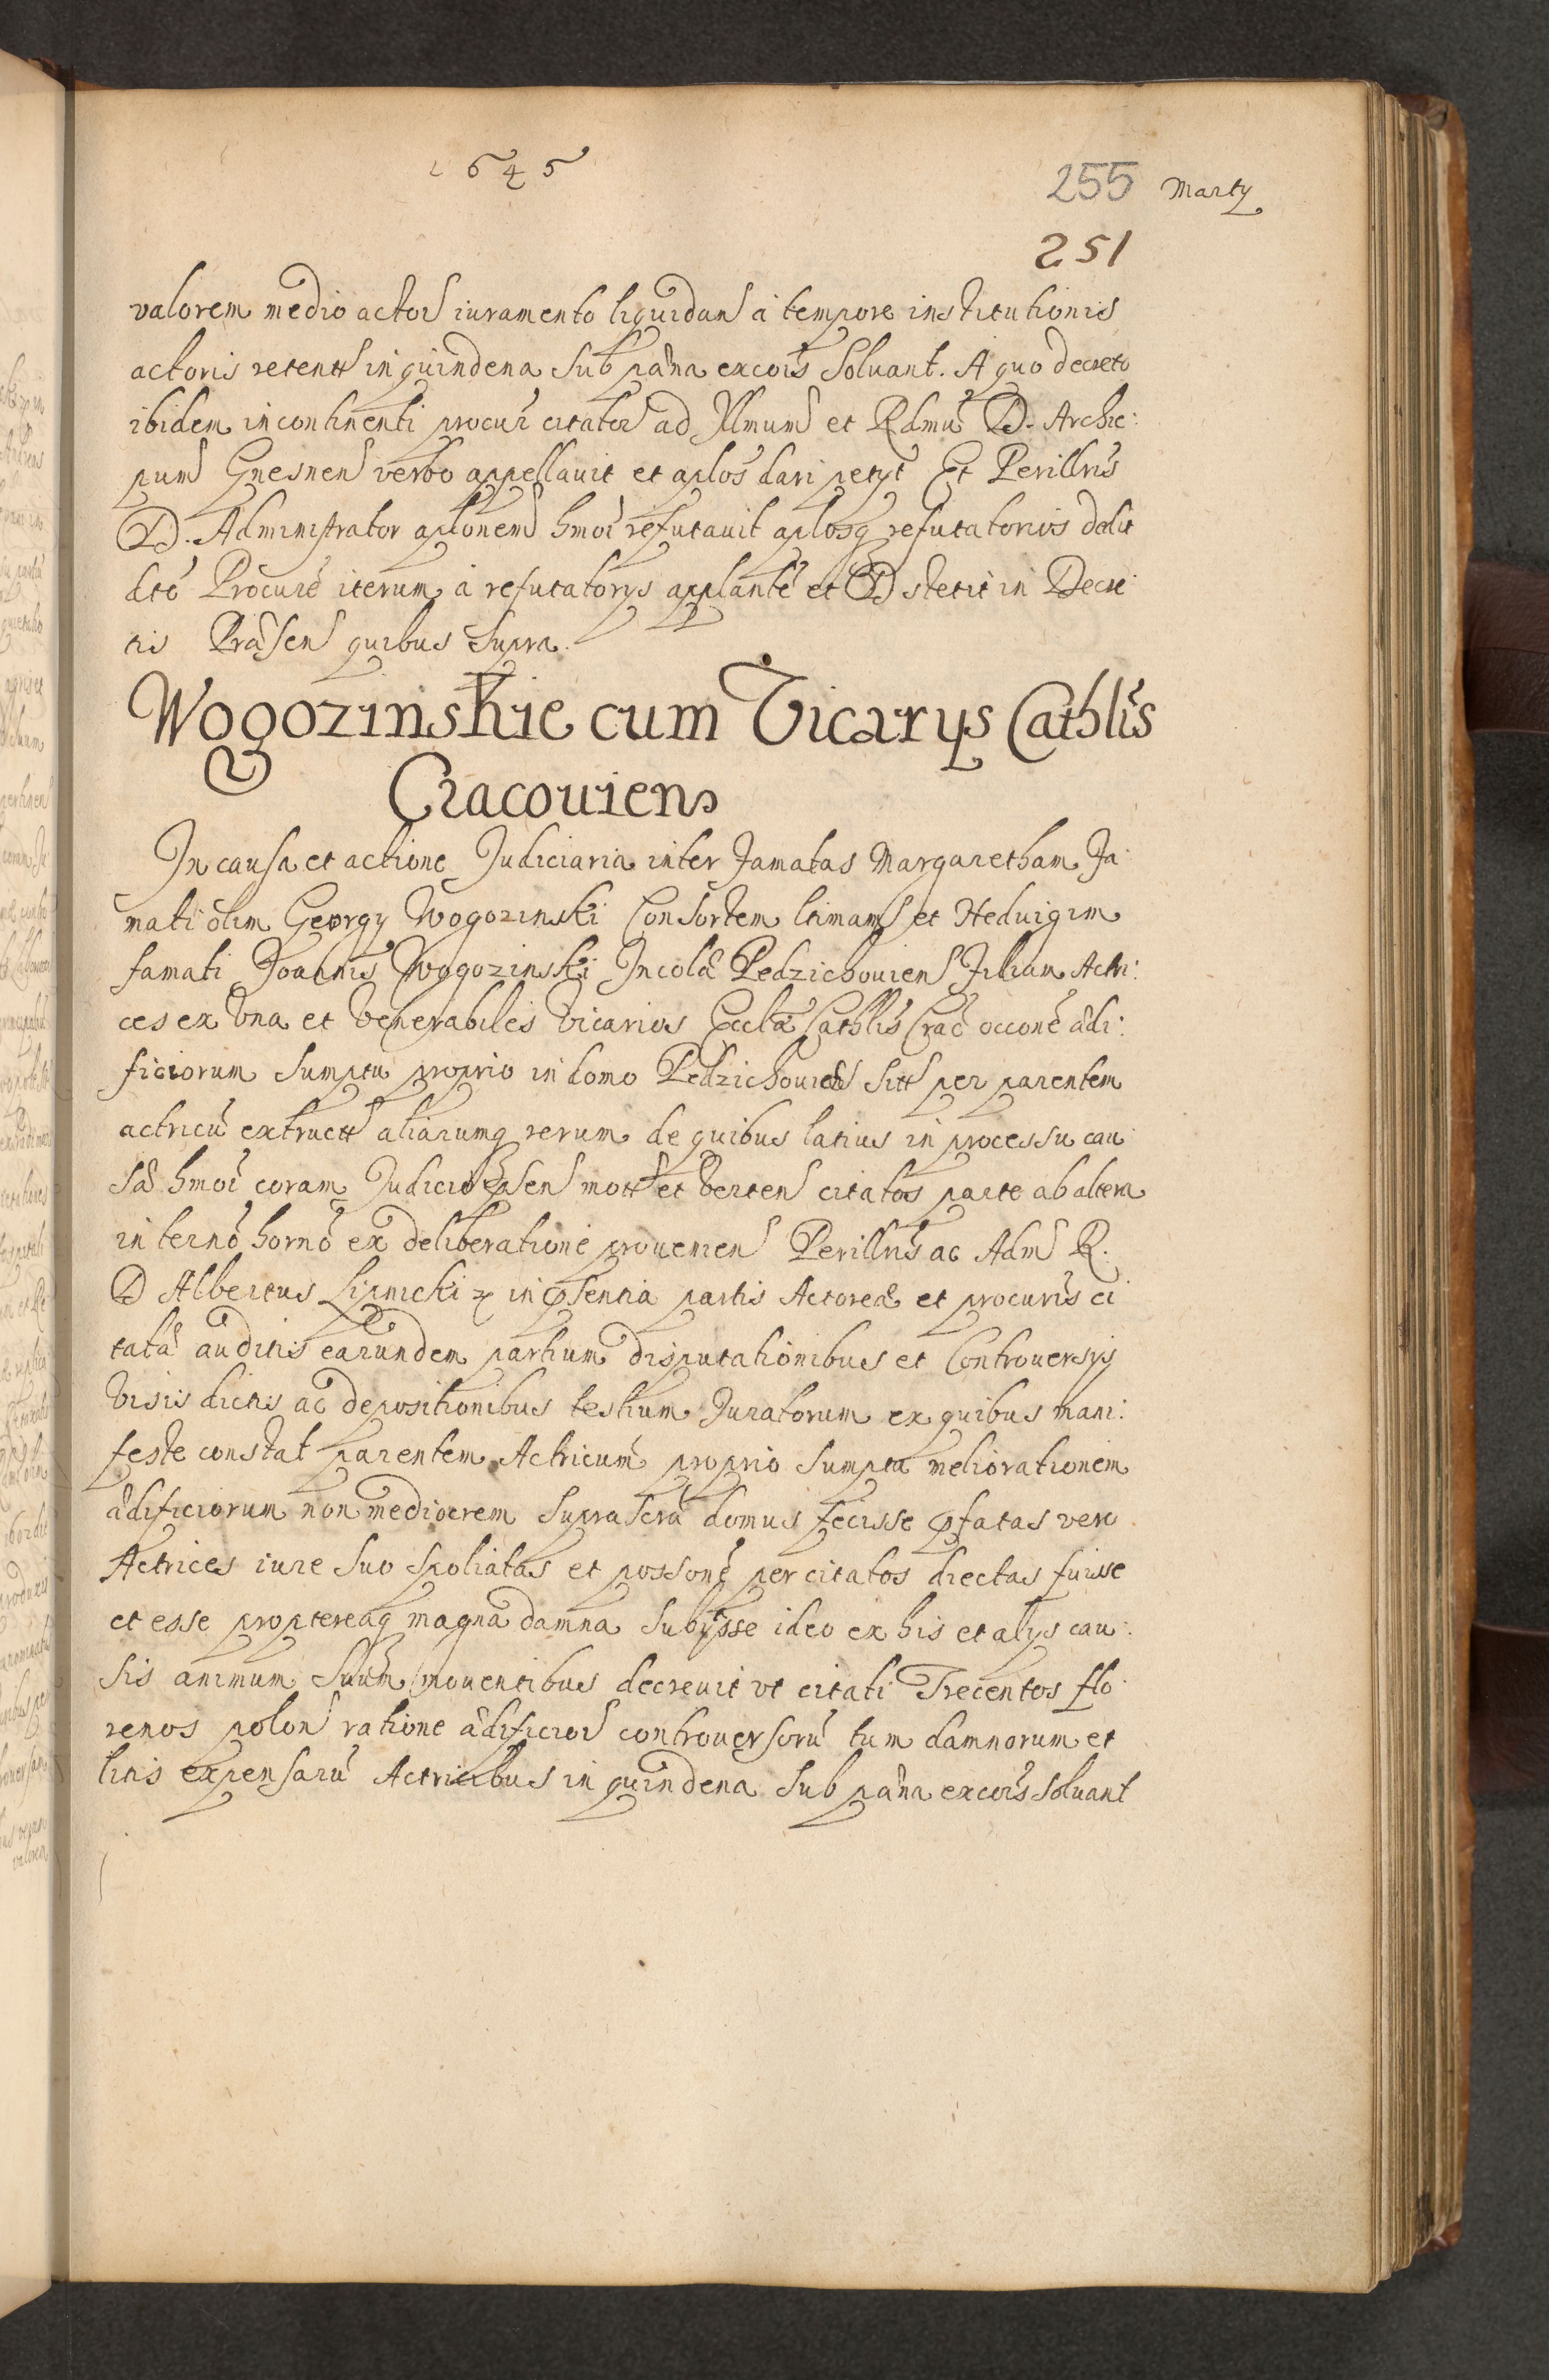 1645
255 Marty
251
valorem medio actor iuramento liquidan a tempore institutionis
actoris retent in quindena sub pæna excois soluant. A quo decreto
ibidem incontinenti procur citator ad Illmum et Rdmu D. Archie:
pum Gnesnen verbo appellauit et aplos dari petyt Et Perillris
D. Administrator aplonem hmoi refutauit aplosq refutatorios dedit
dto Procure iterum a refutatorys applante et D stetit in Decre
tis Præsen quibus supra
Wogozinskie cum Vicarys Cathlis
Cracouiens
In causa et actione Judiciaria inter Famatas Margaretham Fa:
mati olim Georgy Wogozinski Consortem ltimam et Heduigim
famati Joannis Wogozinski Incolæ Pedzichouien Filiam Actri:
ces ex vna et Venerabiles Vicarios Ecclæ Cathlis Crac occone ædi:
ficiorum sumptu proprio in domo Pedzichouien sitt per parentem
actricu extruett aliarumq rerum de quibus latius in processu cau
sæ hmoi coram Judicio psen mott et verten citatos parte ab altera
in termo horno ex deliberatione prouenien Perillris ac Adm R.
D Albertus Lipnicki in psentia partis Actoreæ et procuris ci
tatæ auditis earundem partium disputationibus et Controuersys
visis dictis ac depositionibus testium Juratorum ex quibus mani:
feste constat parentem Actricum proprio sumptu meliorationem
ædificiorum non mediocrem suprascræ domus fecisse pfatas vero
Actrices iure suo spoliatas et possone per citatos eiectas fuisse
et esse proptereaq magna damna subysse ideo ex his et alys cau:
sis animum suum mouentibus decreuit vt citati Trecentos flo
renos polon ratione ædificior controuersoru tum damnorum et
litis expensaru Actricibus in quindena sub pæna excois soluant